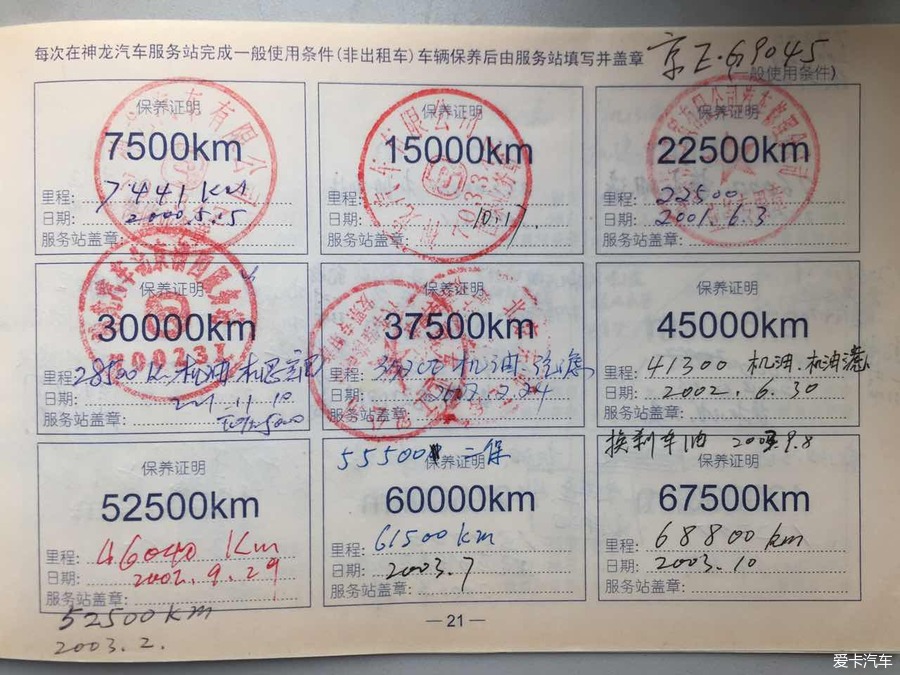 每次在神龙汽车服务站完成一般使用条件(非出租车)车辆保养后由服务站填写并盖章
京E·G9045
(一般使用条件)
保养证明
7500km
里程: 7441km
日期: 2000.5.15
服务站盖章:
保养证明
15000km
里程:
日期: 10.17
服务站盖章:
保养证明
22500km
里程: 22500
日期: 2001.6.3
服务站盖章:
保养证明
30000km
里程: 28500 机油
日期: 11.10
服务站盖章:
000231
保养证明
37500km
里程: 机油
日期:
服务站盖章:
保养证明
45000km
里程: 41300 机油.机油滤
日期: 2002.6.30
服务站盖章:
保养证明
52500km
里程: 46040 Km
日期: 2002.9.29
服务站盖章:
52500KM
2003.2.
55500 二保
保养证明
60000km
里程: 61500km
日期: 2003.7
服务站盖章:
换刹车油 2003.9.8
保养证明
67500km
里程: 68800km
日期: 2003.10
服务站盖章:
— 21 —
爱卡汽车